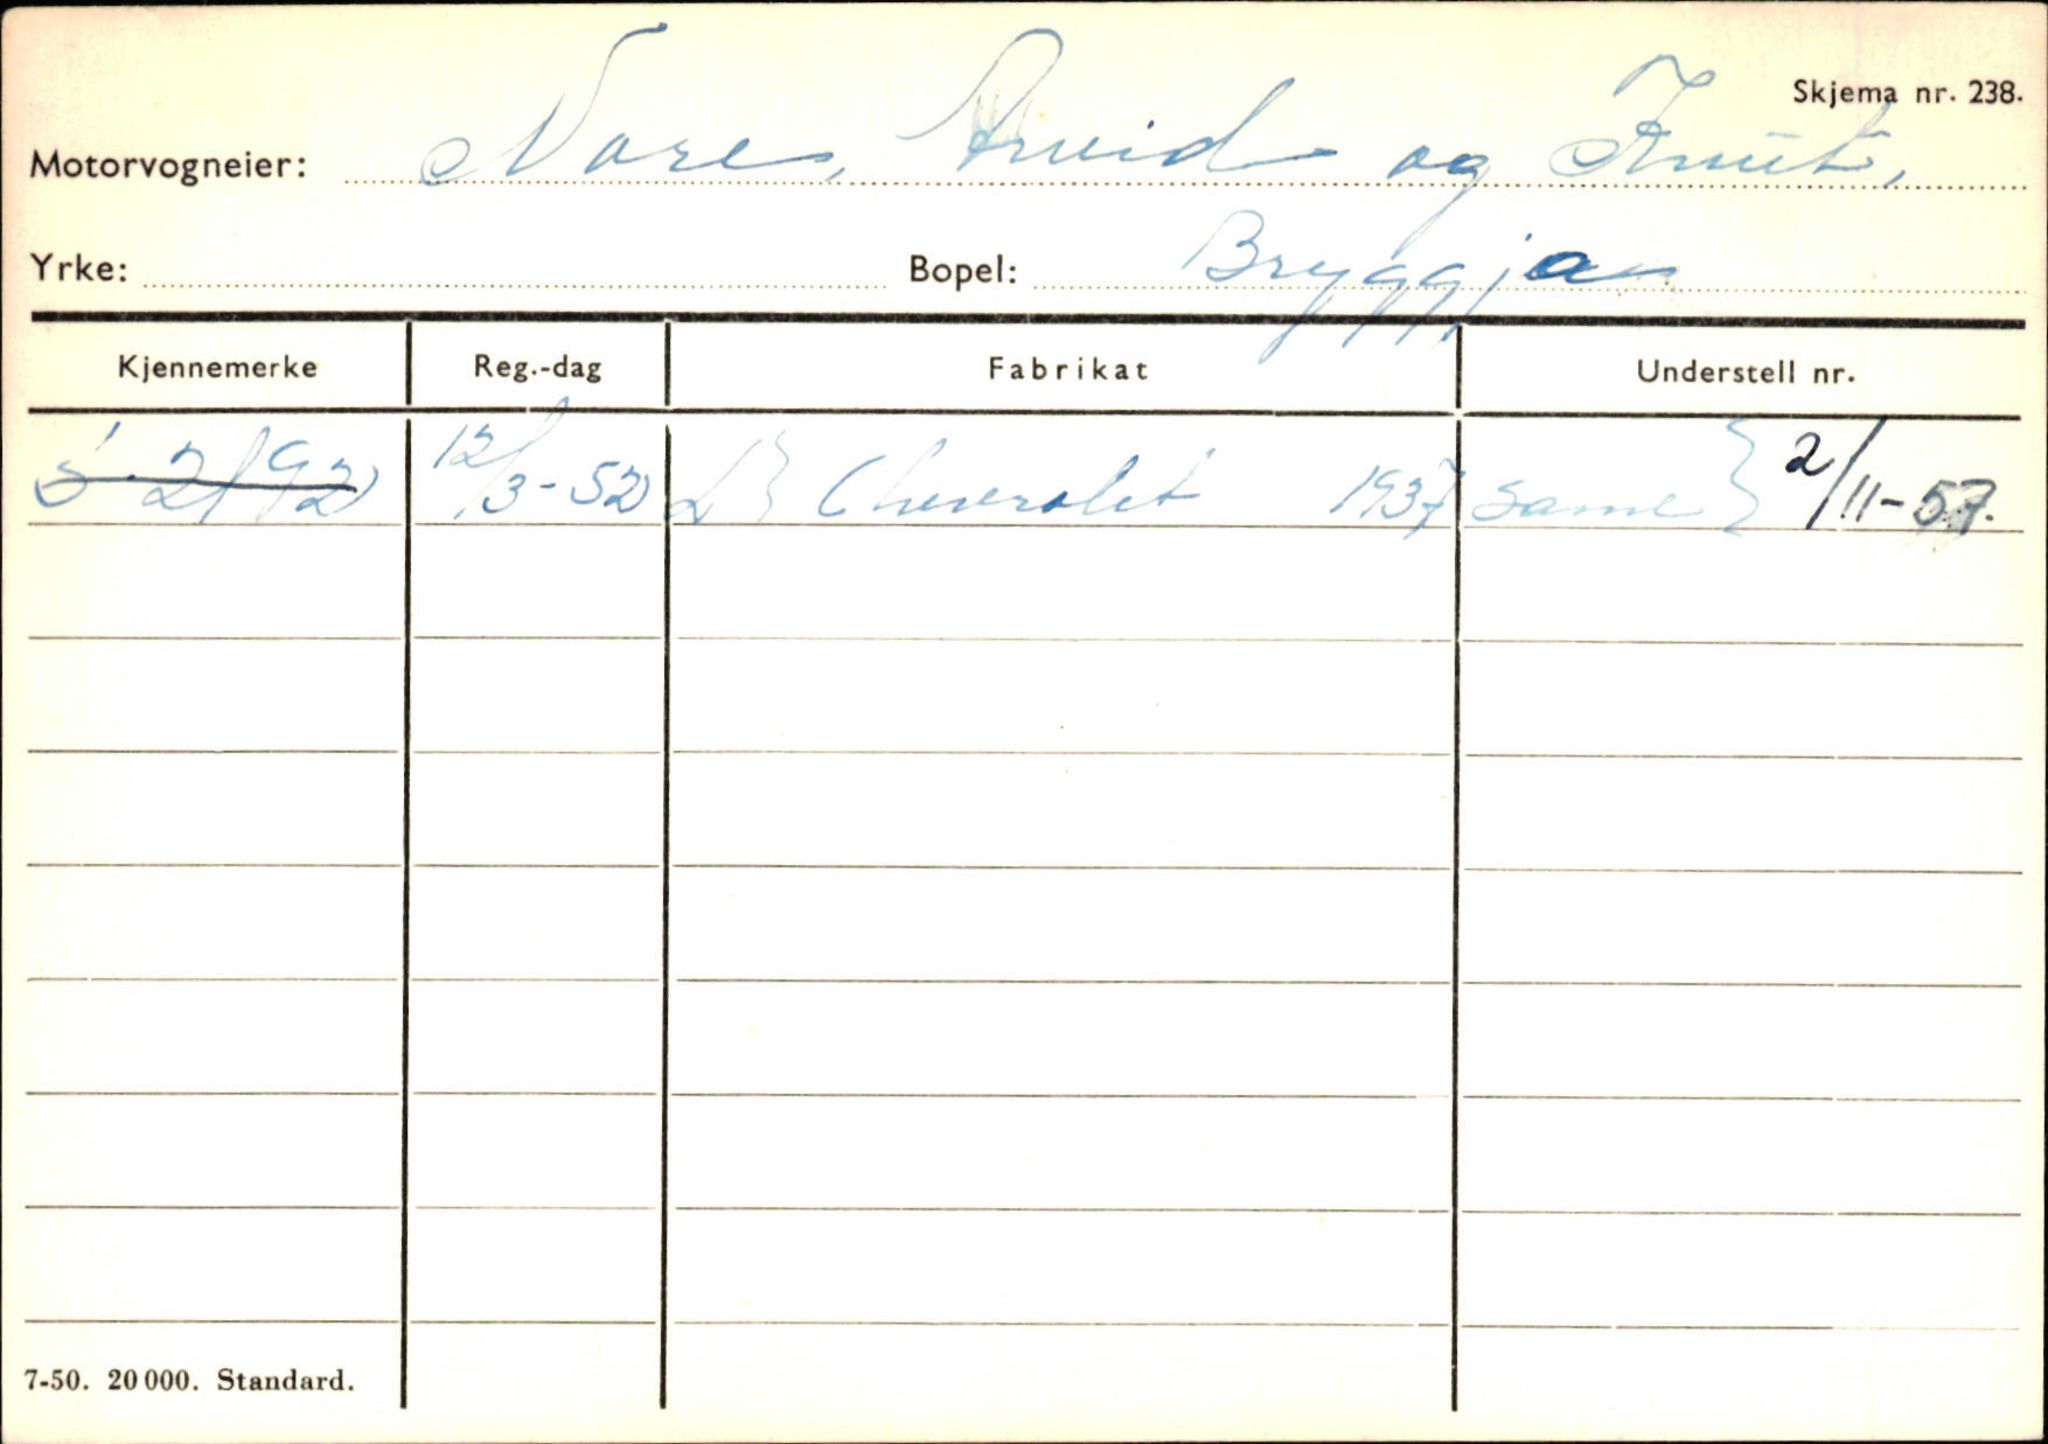 Skjema nr. 238.
Motorvogneier: Nore, Arvid og Knut,
Yrke: Bopel: Bryggja
Kjennemerke Reg.-dag Fabrikat Understell nr.
S-2192 12/3-52 L} Chevrolet 1937 same } 2/11-57.
7-50. 20 000. Standard.